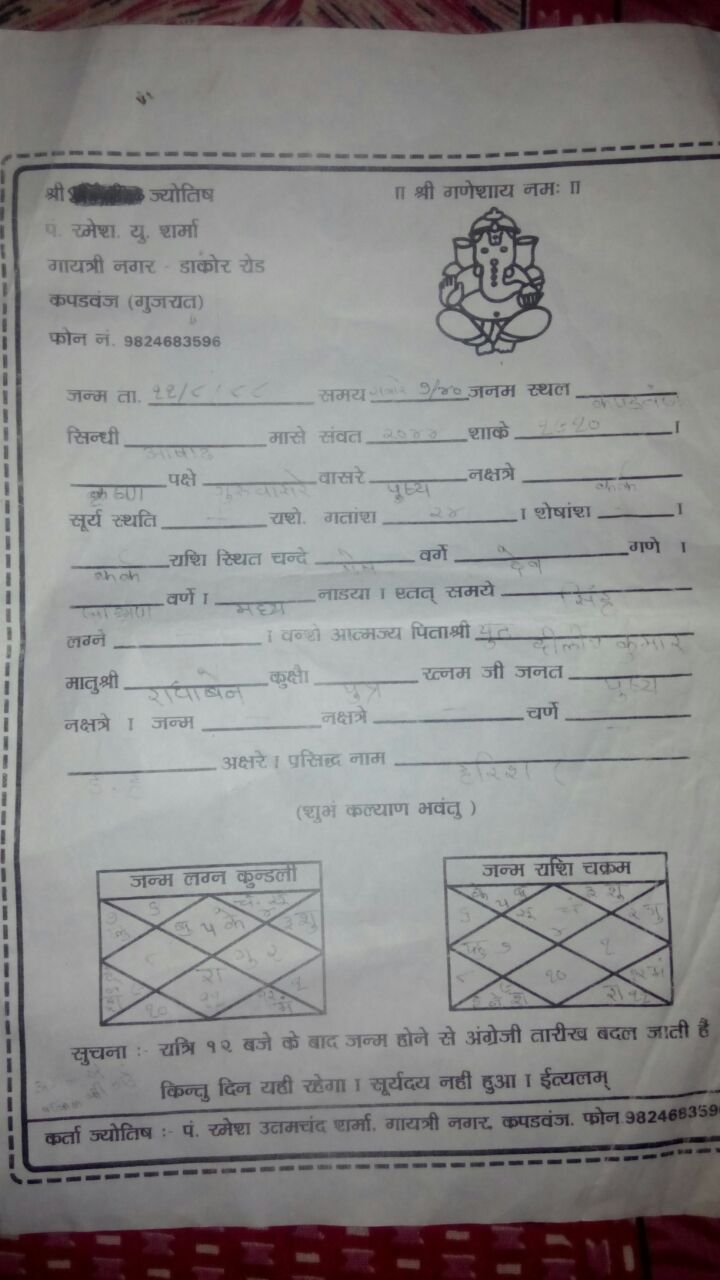 श्री ज्योतिष
॥ श्री गणेशाय नमः ॥
पं. रमेश. यु. शर्मा
गायत्री नगर - डाकोर रोड
कपडवंज (गुजरात)
फोन नं. 9824683596
जन्म ता. ११/८/८८ समय ७/४० जनम स्थल कपडवंज
सिन्धी आषाढ मासे संवत २०४४ शाके १९१० ।
कृष्ण पक्षे गुरुवासरे वासरे पुष्य नक्षत्रे कर्क
सूर्य स्थति राशे. गतांश २४ । शेषांश ।
कर्क राशि स्थित चन्दे मेष वर्गे देव गणे ।
ब्राह्मण वर्णे । मध्य नाडया । एतत् समये सिंह
लग्ने । वन्शे आत्मज्य पिताश्री दीलीप कुमार
मातुश्री कुक्षौ पुत्र रत्नम जी जनत पुष्य
नक्षत्रे । जन्म नक्षत्रे चर्णे
ड. हे अक्षरे । प्रसिद्ध नाम हरिश
(शुभं कल्याण भवंतु )
जन्म लग्न कुन्डली
६ बु ५ के ४ ३ शु
८ गु २
१० रा ११ १२ मं १
जन्म राशि चक्रम
के बु ५ ३ शु
६ ४ २ गु
७ १
८ १० १२ मं
९ रा ११
सुचना :- रात्रि १२ बजे के बाद जन्म होने से अंग्रेजी तारीख बदल जाती है
किन्तु दिन यही रहेगा । सूर्यदय नही हुआ । ईत्यलम्
कर्ता ज्योतिष :- पं. रमेश उतमचंद शर्मा, गायत्री नगर, कपडवंज. फोन 982468359